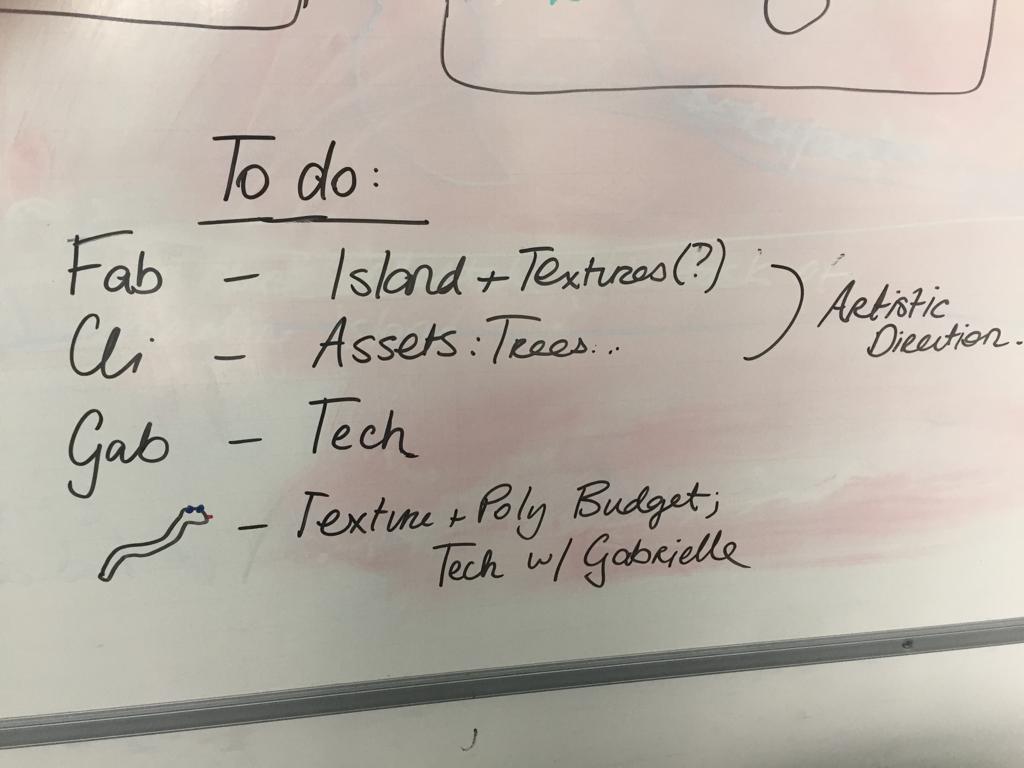 To do:
Fab - Island + Textures(?)
Cli - Assets: Trees...
Artistic
Direction.
Gab - Tech
- Texture + Poly Budget;
Tech w/ Gabrielle